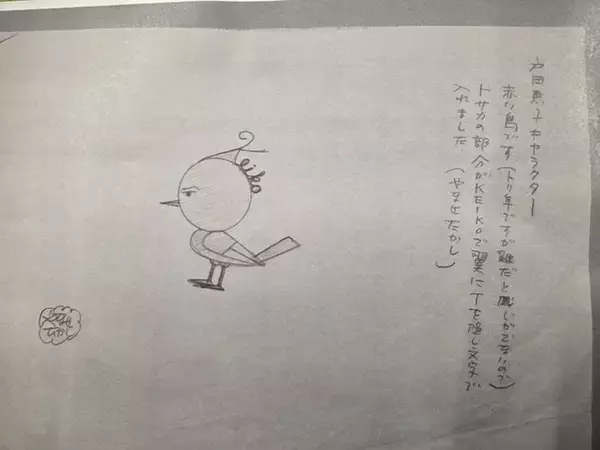 戸田恵子キャラクター
赤い鳥です(トリ年ですが雞だと感じがでないので)
トサカの部分がKEIKOで翼にTを隠し文字で
入れました (やなせたかし)
Keiko
やなせ
たかし